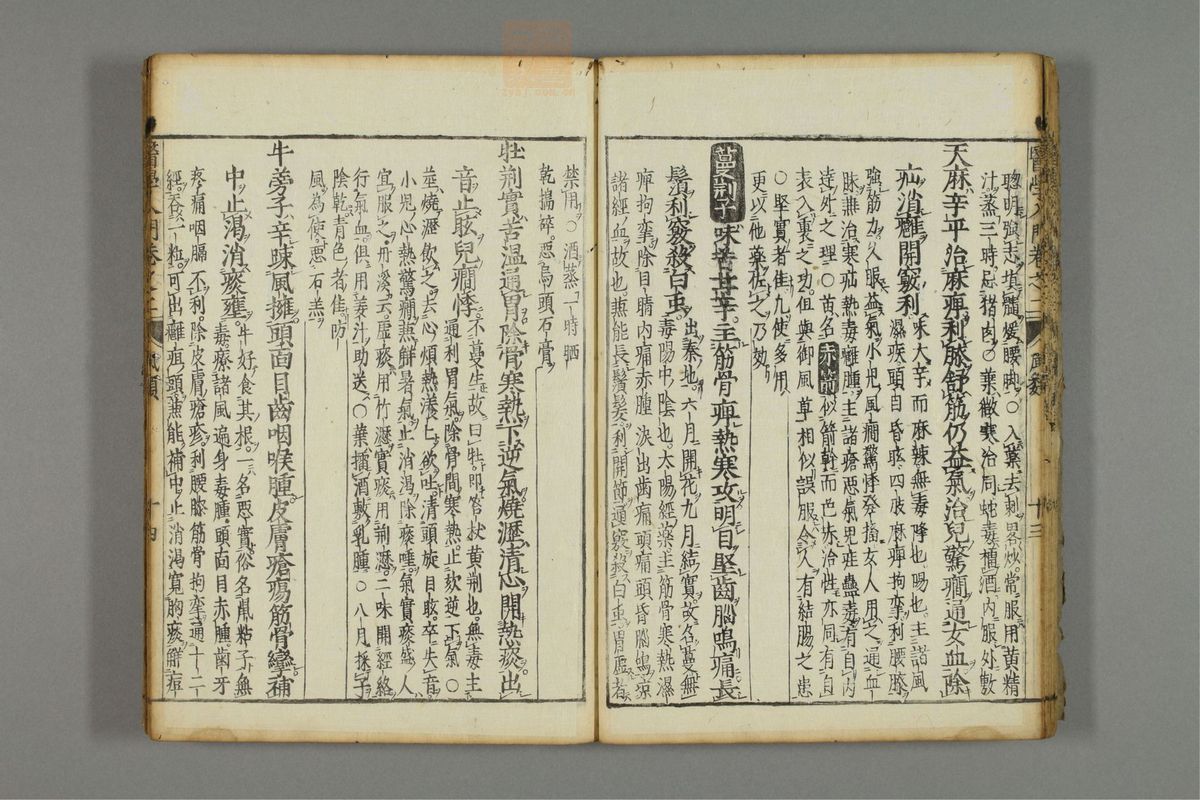 聰明強志填髓煖腰脚○入藥去刺畧炒常服用黄精
汁蒸三時忌猪肉○葉微寒治同蛇毒擅酒内服外敷
天麻辛平治麻痺利膝舒筋仍益氣治兒驚癎通女血除
疝消癰開竅利
味大辛而麻辣無毒降也陽也主諸風
濕痰頭目昏眩四肢麻痺拘攣利腰膝
強筋力久服益氣小兒風癎驚悸發搐女人用之通血
脉兼治寒疝熱毒癰腫主諸瘡惡氣鬼疰蠱毒有自内
達外之理○苗名赤箭似箭幹而色赤治性亦同有自
表入裏之功但與御風草相似誤服令人有結腸之患
○堅實者佳凡使多用
更以他藥佐之乃効
蔓荆子味苦甘辛主筋骨痺熱寒攻明目堅齒腦鳴痛長
鬚利竅殺白虫
出秦地六月開花九月結實故名蔓無
毒陽中陰也太陽經藥主筋骨寒熱濕
痺拘攣除目睛内痛赤腫淚出齒痛頭痛頭昏腦鳴凉
諸經血故也兼能長鬚髪利開節通竅殺白虫胃虛者
禁用○酒蒸一時晒
乾搗碎惡烏頭石膏
牡荆實苦温通胃除骨寒熱下逆氣燒瀝清心開熱痰出
音止眩兒癎悸
不蔓生故曰牡即笞杖黄荆也無毒主
通利胃氣除骨間寒熱止欬逆下氣○
莖燒瀝飲之去心煩熱漾漾欲吐清頭旋目眩卒失音
小兒心熱驚癎兼解暑氣止消渴除痰唾氣實痰盛人
宜服之丹溪云虛痰用竹瀝實痰用荆瀝二味開經絡
行氣血俱用姜汁助送○葉擂酒敷乳腫○八月採子
陰乾青色者佳防
風為使惡石羔
牛蒡子辛疎風擁頭面目齒咽喉腫皮膚瘡瘍筋骨攣補
中止渴消痰壅
牛好食其根一名惡實俗名鼠粘子無
毒療諸風遍身毒腫頭面目赤腫齒牙
疼痛咽膈不利除皮膚瘡疹利腰膝筋骨拘攣通十二
經吞一粒可出癰疽頭兼能補中止消渴寛胸痰觧痘
醫學入門卷之二
風類
十三
醫學入門卷之二
風類
十四